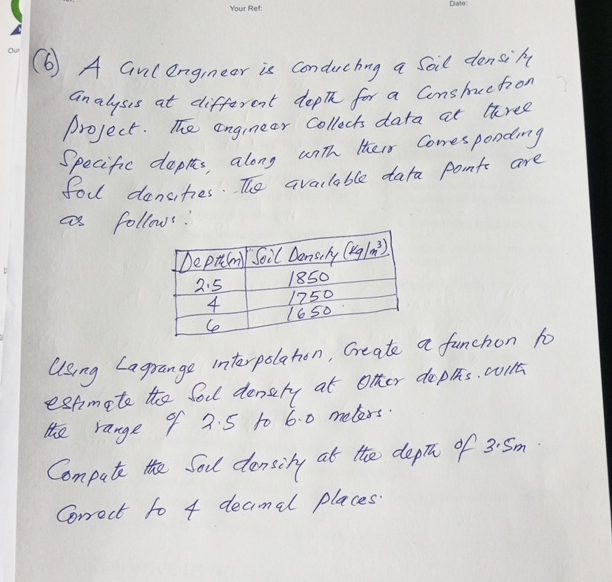 Your Ref:
Date:
Our
(6) A civil engineer is conducting a soil density
analysis at different depth for a construction
project. The engineer collects data at three
specific depths, along with their corresponding
soil densities. The available data points are
as follows:
Depth(m) Soil Density (kg/m³)
2.5 1850
4 1750
6 1650
Using Lagrange interpolation, Create a function to
estimate the soil density at other depths. with
the range of 2.5 to 6.0 meters.
Compute the soil density at the depth of 3.5m.
Correct to 4 decimal places.